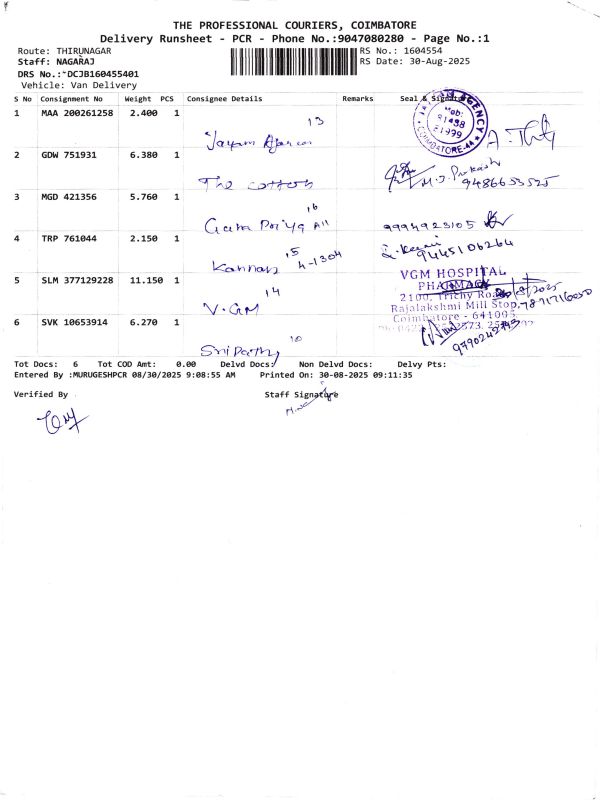 THE PROFESSIONAL COURIERS, COIMBATORE
Delivery Runsheet - PCR - Phone No.:9047080280 - Page No.:1
Route: THIRUNAGAR RS No.: 1604554
Staff: NAGARAJ RS Date: 30-Aug-2025
DRS No.: DCJB160455401
Vehicle: Van Delivery
S No Consignment No Weight PCS Consignee Details Remarks Seal & Signature
1 MAA 200261258 2.400 1
13
AGENCY
Mob:
COIMBATORE-44
2 GDW 751931 6.380 1
The cottons
M.J. Prakash
9486653525
3 MGD 421356 5.760 1
16
9994923105
4 TRP 761044 2.150 1
15
Kannan 4-1304
9445106264
5 SLM 377129228 11.150 1
14
V.GM
VGM HOSPITAL
PHARMACY
2100, Trichy Road
Rajalakshmi Mill Stop,
Coimbatore - 641005
6 SVK 10653914 6.270 1
10
9790242793
Tot Docs: 6 Tot COD Amt: 0.00 Delvd Docs: Non Delvd Docs: Delvy Pts:
Entered By :MURUGESHPCR 08/30/2025 9:08:55 AM Printed On: 30-08-2025 09:11:35
Verified By Staff Signature